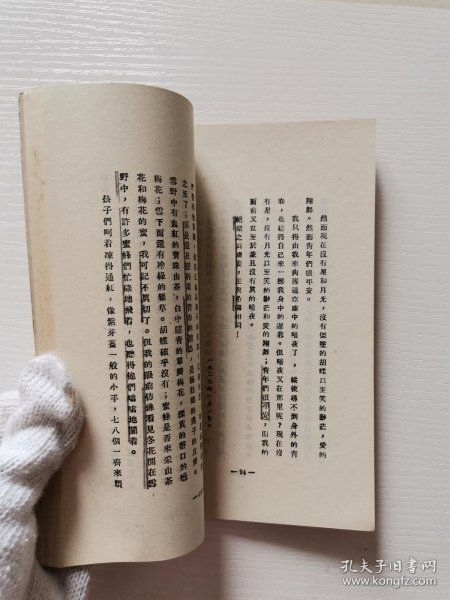 然而現在沒有星和月光，沒有僵墜的胡蝶以至笑的渺茫，愛的
翔舞。然而青年們很平安。
我只得由我來肉薄這空虛中的暗夜了，縱使尋不到身外的青
春，也總得自己來一擲我身中的遲暮。但暗夜又在那里呢？現在沒
有星，沒有月光以至笑的渺茫和愛的翔舞；青年們很平安，而我的
面前又竟至於並且沒有真的暗夜。
絕望之爲虛妄，正與希望相同！
一九二五年一月一日。
—24—
之至了；那是還在隱約着的青春的消息，是極壯健的處子的皮膚。
雪野中有血紅的寶珠山茶，白中隱青的單瓣梅花，深黃的磬口的蠟
梅花；雪下面還有冷綠的雜草。胡蝶確乎沒有；蜜蜂是否來采山茶
花和梅花的蜜，我可記不真切了。但我的眼前彷彿看見冬花開在雪
野中，有許多蜜蜂們忙碌地飛着，也聽得他們嗡嗡地鬧着。
孩子們呵着凍得通紅，像紫芽薑一般的小手，七八個一齊來塑
孔夫子旧书网
www.kongfz.com